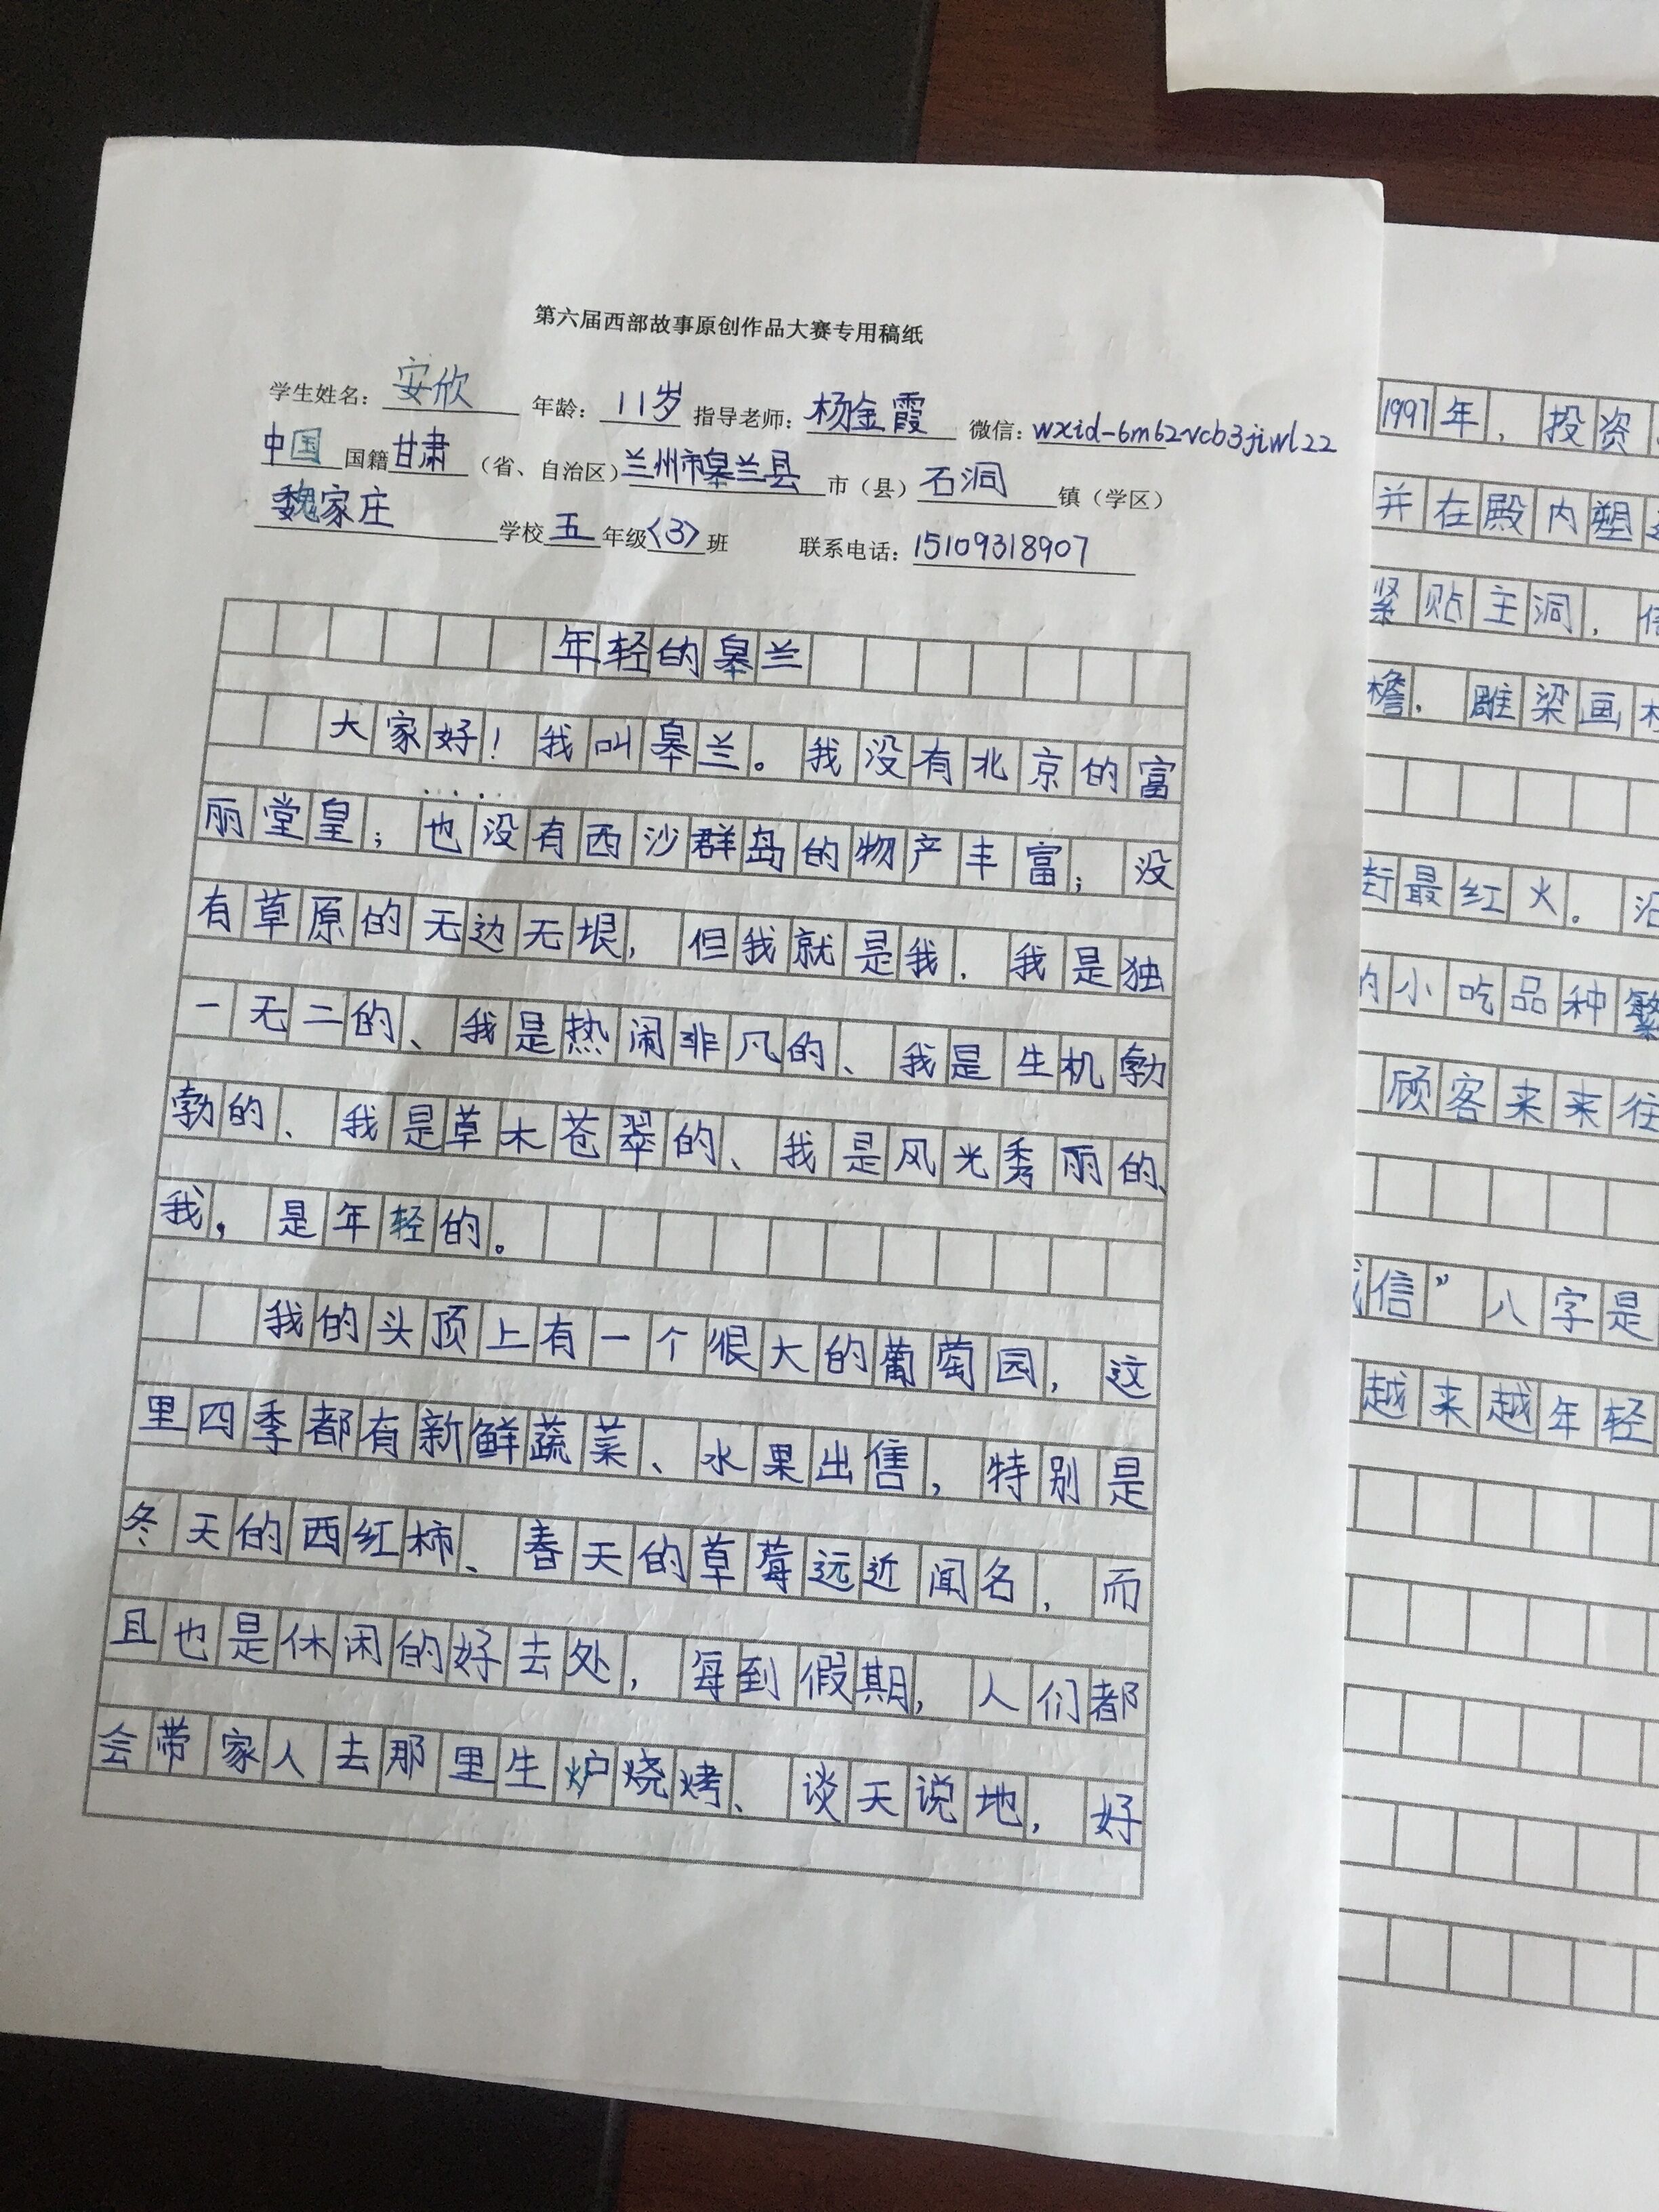 第六届西部故事原创作品大赛专用稿纸
学生姓名：安欣 年龄：11岁 指导老师：杨金霞 微信：wxid-6m62vcb3jiwl22
中国国籍甘肃（省、自治区）兰州市皋兰县市（县）石洞镇（学区）
魏家庄学校五年级〈3〉班 联系电话：15109318907
年轻的皋兰
大家好！我叫皋兰。我没有北京的富
丽堂皇；也没有西沙群岛的物产丰富；没
有草原的无边无垠，但我就是我．我是独
一无二的、我是热闹非凡的、我是生机勃
勃的、我是草木苍翠的、我是风光秀丽的、
我，是年轻的。
我的头顶上有一个很大的葡萄园，这
里四季都有新鲜蔬菜、水果出售，特别是
冬天的西红柿、春天的草莓远近闻名，而
且也是休闲的好去处，每到假期，人们都
会带家人去那里生炉烧烤、谈天说地，好
1997年，投资
并在殿内塑
紧贴主洞，
檐．雕梁画
街最红火。沿
的小吃品种繁
顾客来来往
信”八字是
越来越年轻